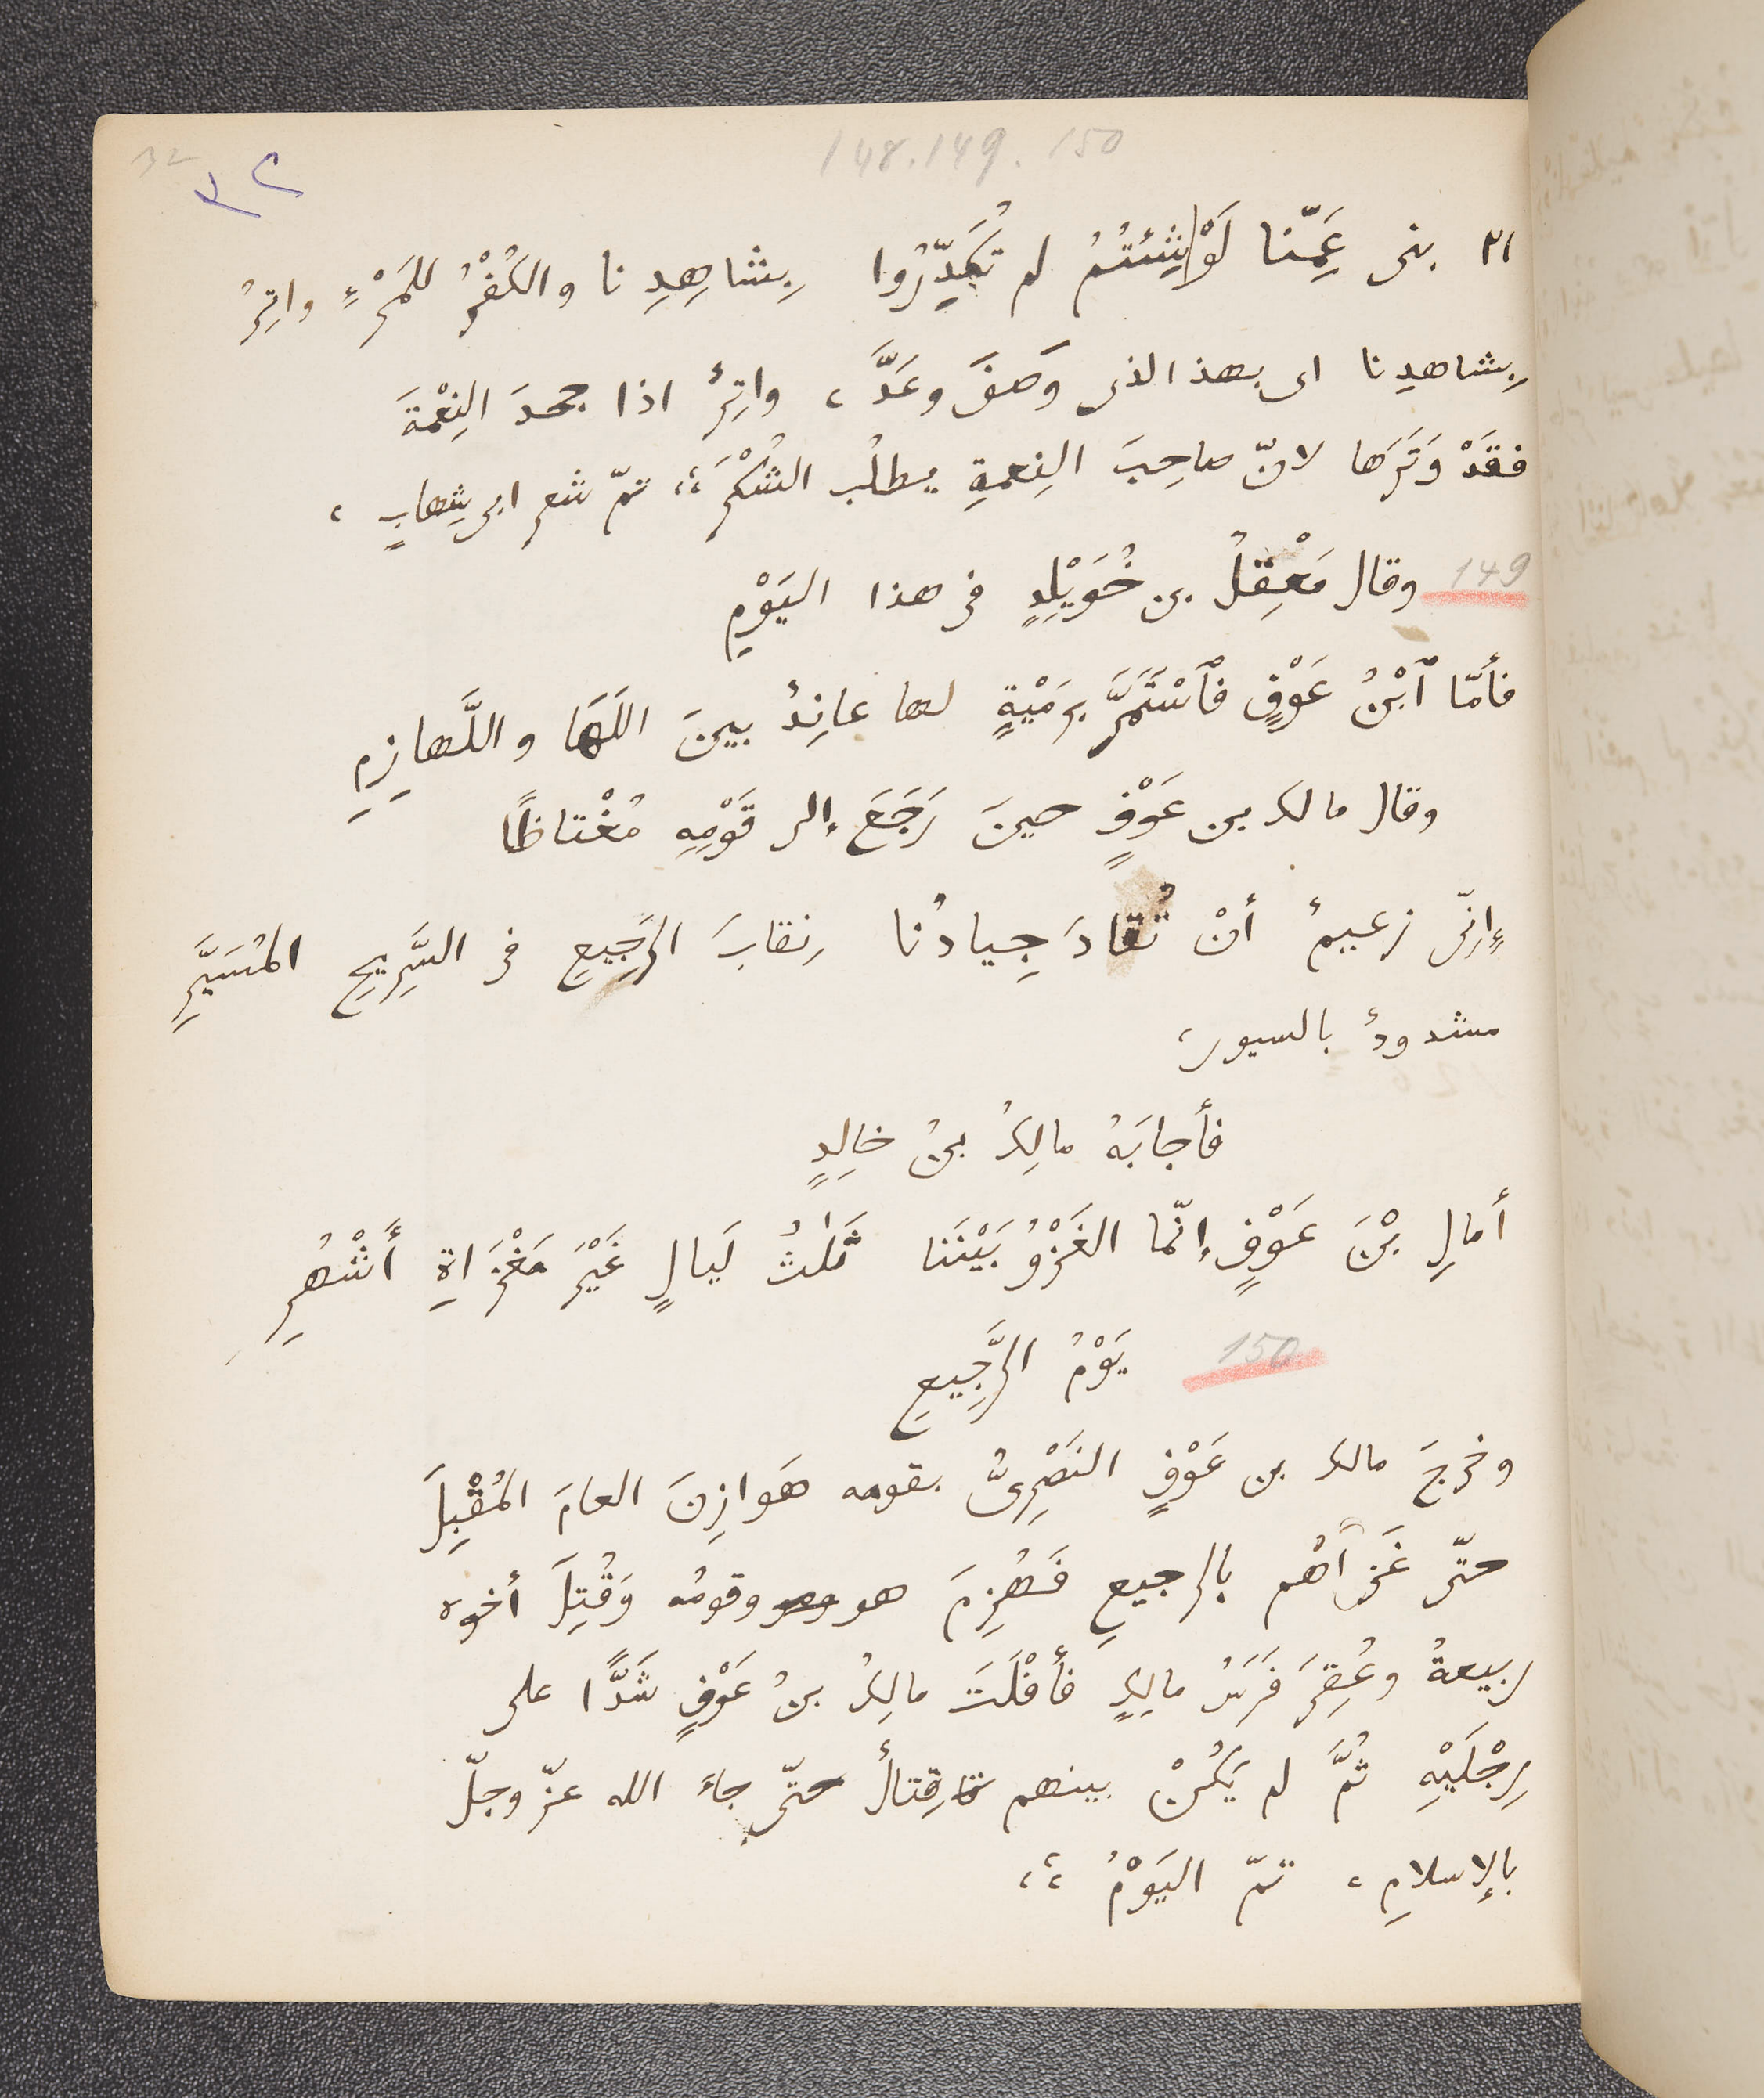 148. 149. 150
32
٣٢
٢١ بنى عَمِّنا لَوْ شِئتُمُ لم تُكَدِّرُوا بِشاهِدِنا والكُفْرُ للمَرْءِ واتِرُ
بِشاهدِنا اى بهذ الذى وَصفَ وعَدَّ، واتِرٌ اذا جحدَ النِعْمَةَ
فقَدْ وَتَرَها لانّ صاحِبَ النِعمةِ يطلُب الشُكْرَ،؛ تمّ شعر ابى شِهابٍ،
149 وقال مَعْقِلُ بن خُوَيْلِدٍ فى هذا اليَوْمِ
فأمّا ٱبْنُ عَوْفٍ فٱسْتَمَرَّ برَمْيَةٍ لها عانِدٌ بينَ اللَهَا واللَّهازِمِ
وقال مالك بن عَوْفٍ حينَ رَجَعَ إلى قَوْمِهِ مُغْتاظًا
إِنّى زعيمٌ أنْ تُقادَ جِيادُنا نِقابَ الرَّجِيعِ فى السَّرِيحِ المُسَيَّرِ
مشدودٌ بالسيور،
فأجابَهُ مالِكُ بنُ خالِدٍ
أمالِ بْنَ عَوْفٍ إنّما الغَزْوُ بَيْنَنا ثَلٰثُ لَيالٍ غَيْرَ مَغْزَاةِ أَشْهُرِ
150 يَوْمُ الرَّجِيعِ
وخرجَ مالك بن عَوْفٍ النَصْرِىُّ بقومه هَوازِنَ العامَ المُقْبِلَ
حتّى غَزَاهُم بالرجيعِ فَهُزِمَ هو وقومُه وَقُتِلَ أخوه
ربيعةُ وعُقِرَ فَرَسُ مالِكٍ فأَفْلَتَ مالِكُ بنُ عَوْفٍ شَدًّا على
رِجْلَيْهِ ثُمَّ لم يَكُنْ بينهم قِتالٌ حتّى جاءَ الله عزّ وجلّ
بالإسلامِ، تمّ اليَوْمُ،؛